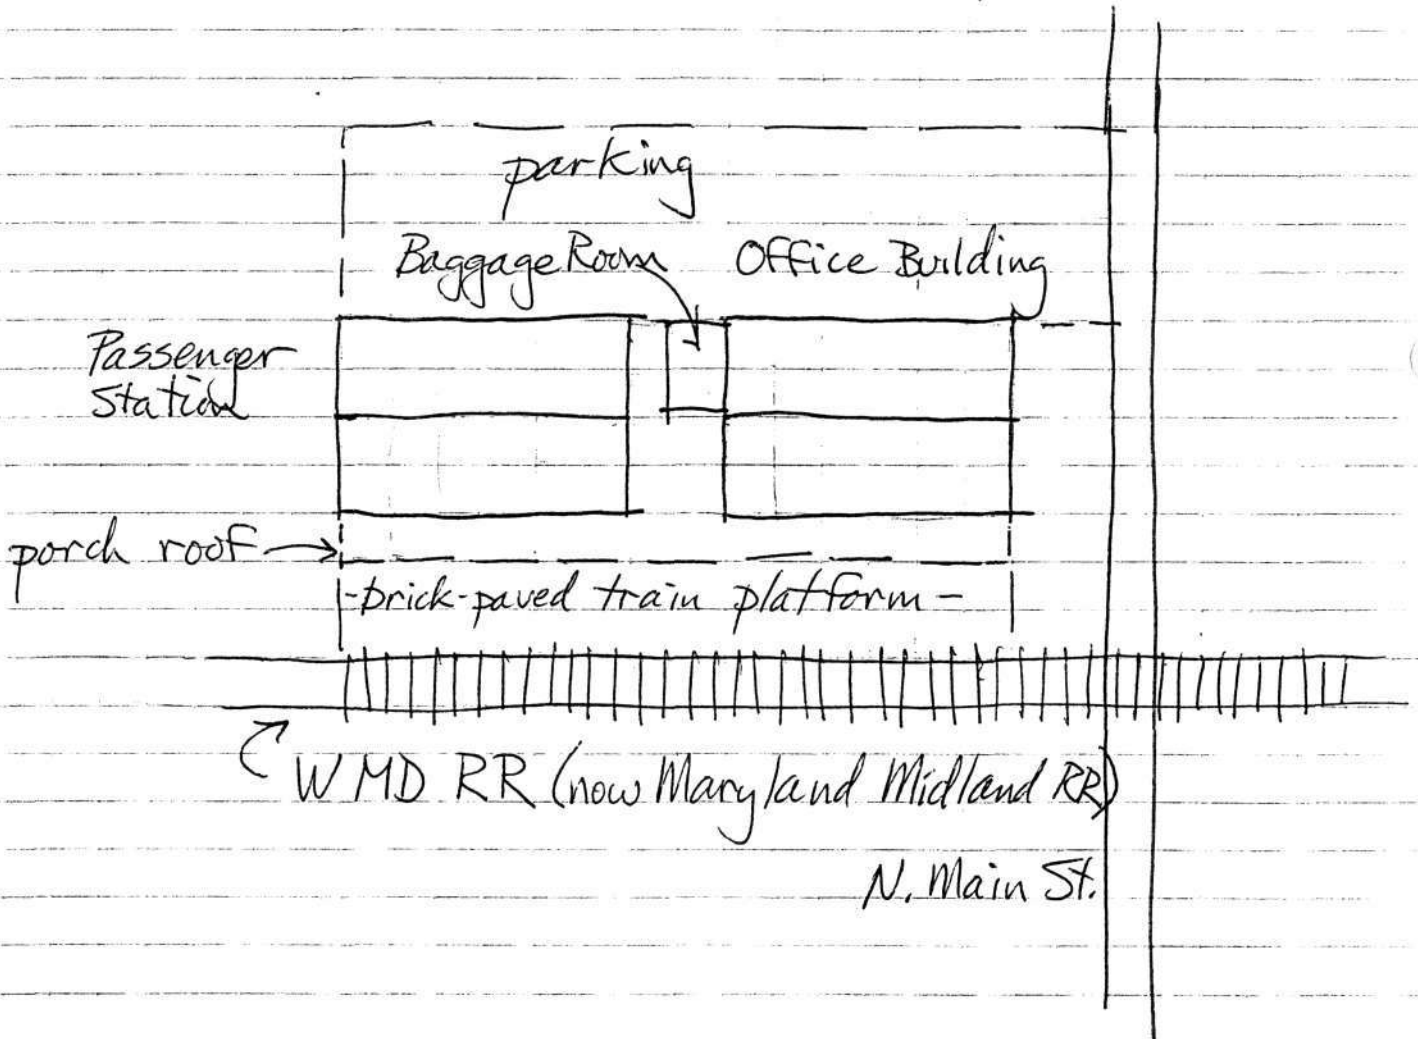 parking
Baggage Room
Office Building
Passenger
Station
porch roof
-brick-paved train platform-
WMD RR (now Maryland Midland RR)
N. Main St.